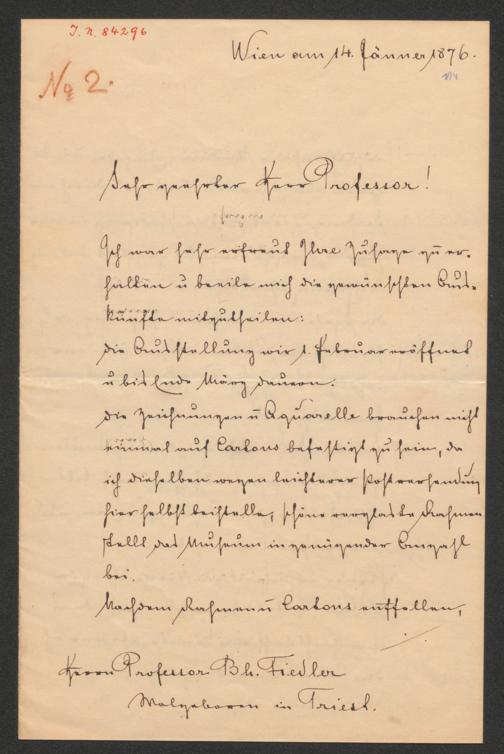 J. N. 84296
Wien am 14. Jänner 1876.
No 2.
Sehr geehrter Herr Professor!
Ich war sehr erfreut Ihre Zusage zu er-
halten u beeile mich die gewünschten Aus-
künfte mitzutheilen:
die Ausstellung wir 1. Februar eröffnet
u bis Ende März dauern.
die Zeichnungen u Aquarelle brauchen nicht
einmal auf Cartons befestigt zu sein, da
ich dieselben wegen leichterer Postversendung
hier selbst beistelle, schöne verglaste Rahmen
stellt das Museum in genügender Anzahl
bei.
Nachdem Rahmen u Cartons entfallen,
Herrn Professor Bh. Fiedler
Wolgeboren in Triest.